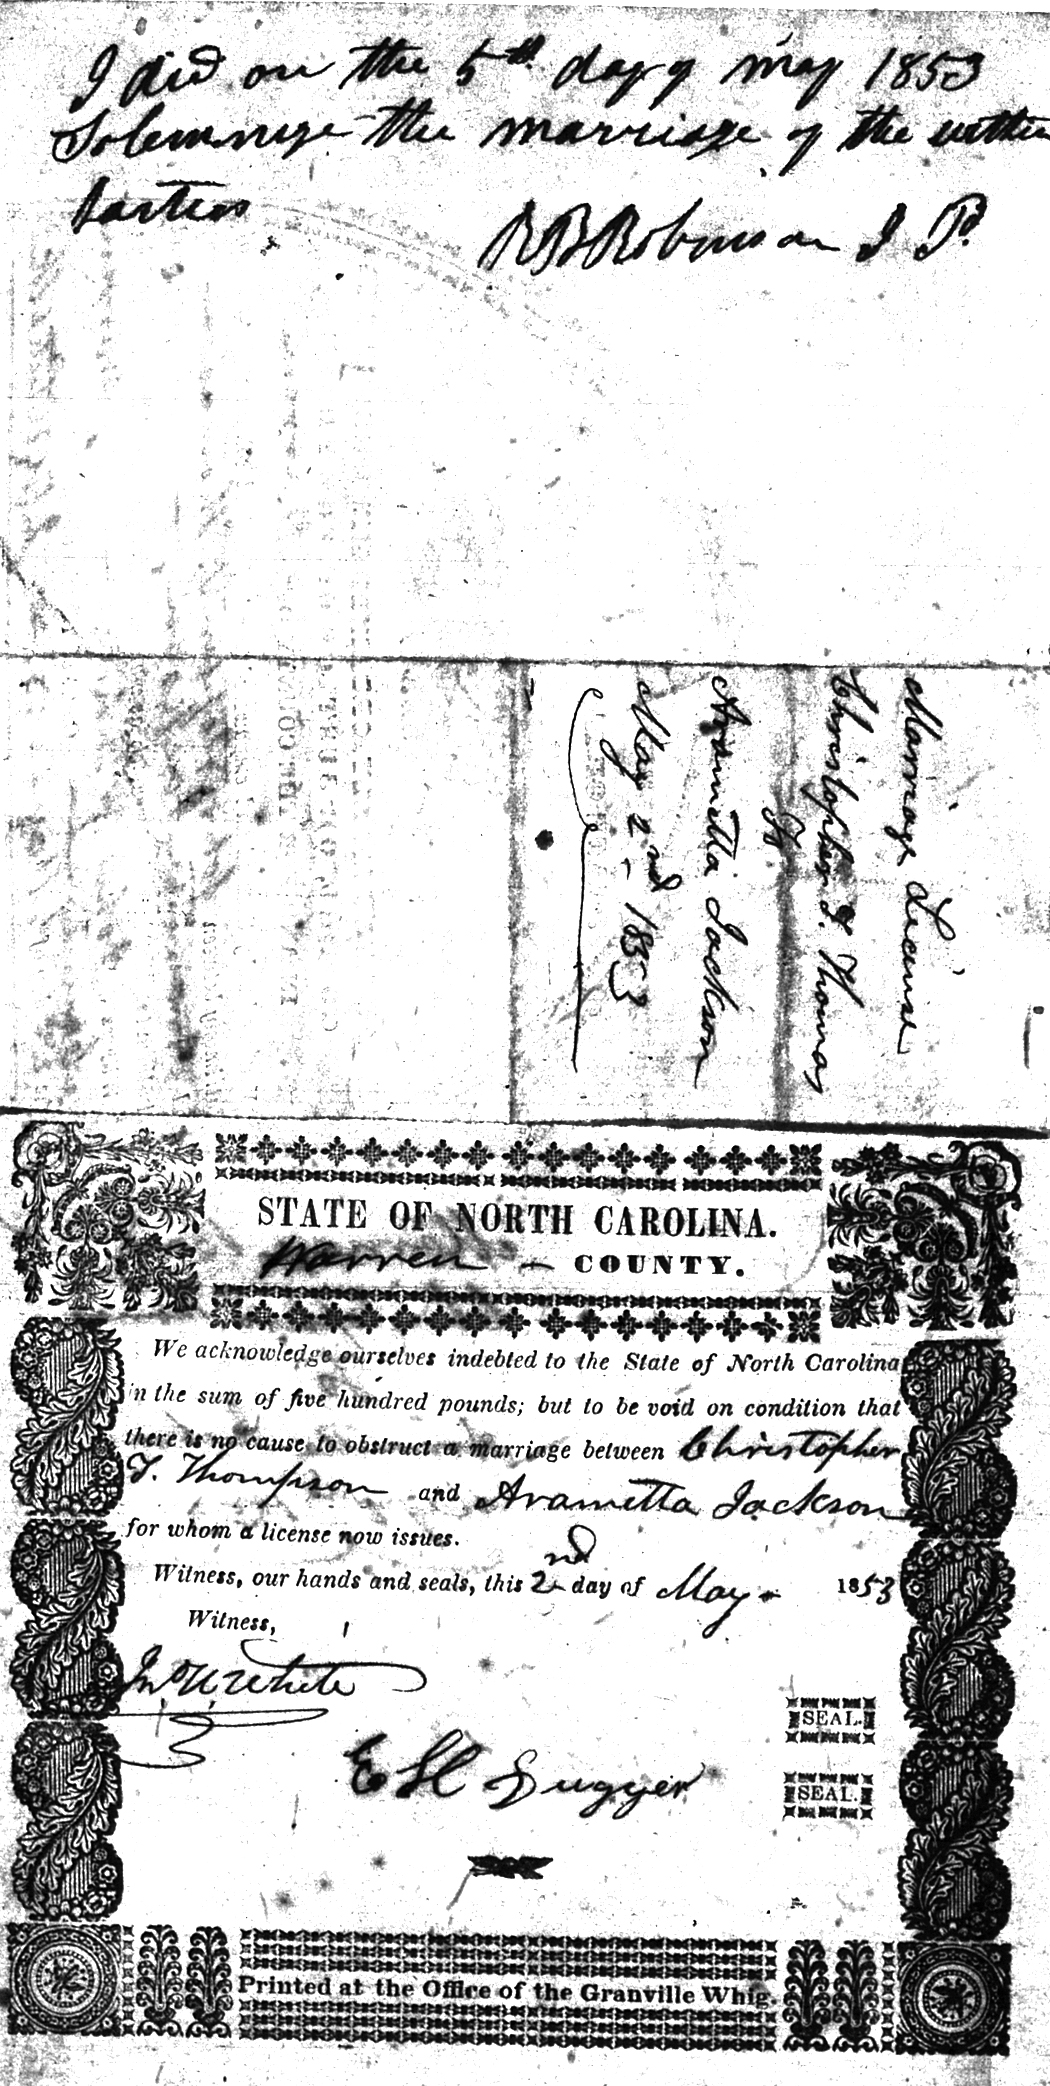 I did on the 5th day of may 1853
Solemnize the marriage of the within
parties
R B Robinson J P
Marriage License
Christopher T. Thomas
To
Aramitta Jackson
May 2nd 1853
STATE OF NORTH CAROLINA.
Warren COUNTY.
We acknowledge ourselves indebted to the State of North Carolina
in the sum of five hundred pounds; but to be void on condition that
there is no cause to obstruct a marriage between Christopher
T. Thompson and Aramitta Jackson
for whom a license now issues.
Witness, our hands and seals, this 2nd day of May 1853
Witness,
Jno W. White
SEAL.
E H Dugger
SEAL.
Printed at the Office of the Granville Whig.